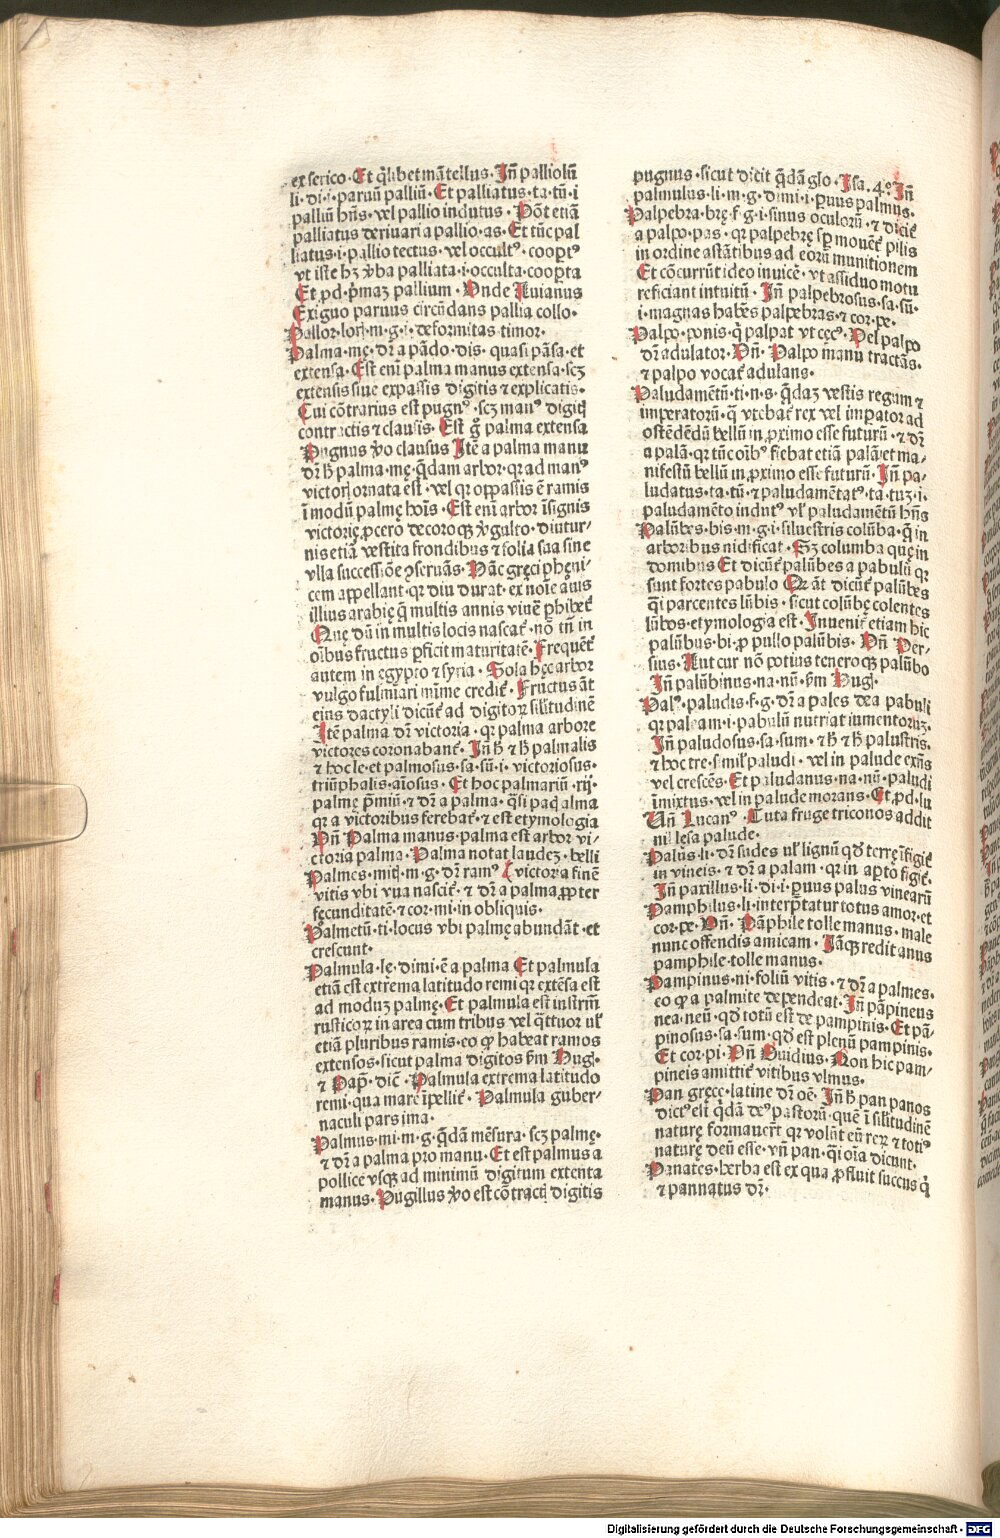 ex serico. Et q̄libet mātellus. Jn̄ palliolū
li. di. i. paruū palliū. Et palliatus. ta. tū. i
palliū hn̄s. vel pallio indutus. Pōt etiā
palliatus deriuari a pallio. as. Et tūc pal
liatus. i. pallio tectus. vel occultꝰ. cooptꝰ
vt iste hꝫ v̓ba palliata. i. occulta coop̱ta
Et ꝓd. p̓maꝫ pallium. Vnde Auianus
Exiguo paruus circūdans pallia collo.
Pallor. lorꝭ. m. g. i. deformitas timor.
Palma. mę. dr̄ a pādo. dis. quasi pāsa. et
extensa. Est eni palma manus extensa. scꝫ
extensis siue expassis digitis ⁊ explicatis.
Cui cōtrarius est pugnꝰ. scꝫ manꝰ digiꝭ
contractis ⁊ clausis. Est g̓ palma extensa
Pugnus v̓o clausus Jtē a palma manu
dr̄ h̄ palma. mę. q̄dam arbor. qr ad manꝰ
victorꝭ ornata est. vel qr oppassis ē ramis
ī modū palmę hoīs. Est enī arbor īsignis
victorię, ꝓcero decoroqꝫ v̓gulto. diutur-
nis etiā vestita frondibus ⁊ folia sua sine
vlla successiōe ꝯseruās. Hāc gręci phęni-
cem appellant. qr diu durat. ex noīe auis
illius arabię q̄ multis annis viue᷑ ꝓhibet᷑
Que dū in multis locis nascat᷑. nō tn̄ in
oībus fructus ꝑficit maturitatē. Frequēt᷑
autem in egypto ⁊ syria. Sola hęc arbor
vulgo fulmiari mīme credit᷑. Fructus āt
eius dactyli dicūt᷑ ad digitoꝝ silitudinē
Jtē palma dr̄ victoria. qr palma arbore
victores coronabant᷑. Jn̄ h̄ ⁊ h̄ palmalis
⁊ hoc le. et palmosus. sa. sū. i. victoriosus.
triūphalis. aīosus. Et hoc palmariū. rij.
palmę p̄miū. ⁊ dr̄ a palma. q̄si paq̓ alma
qr a victoribus ferebat᷑. ⁊ est etymologia
Vn̄ Palma manus. palma est arbor vi-
ctoria palma. Palma notat laudeꝫ. belli
Palmes. mitꝭ. m. g. dr̄ ramꝰ victor a finē
vitis vbi vua nascit᷑. ⁊ dr̄ a palma ꝓpter
fęcunditatē. ⁊ cor. mi. in obliquis.
Palmetū. ti. locus vbi palmę abundāt. et
crescunt.
Palmula. lę. dimi. ē a palma Et palmula
etiā est extrema latitudo remi qꝛ extēsa est
ad moduꝫ palmę. Et palmula est instrm̄
rusticoꝝ in area cum tribus vel q̄ttuor ul̓
etiā pluribus ramis. eo ꝙ habeat ramos
extensos. sicut palma digitos ẜm Hugꝭ.
⁊ Pap̄. dic᷑. Palmula extrema latitudo
remi. qua mare īpellit᷑. Palmula guber-
naculi pars ima.
Palmus. mi. m. g. q̄dā mēsura. scꝫ palmę.
⁊ dr̄ a palma pro manu. Et est palmus a
pollice vsqꝫ ad minimū digitum extenta
manus. Pugillus v̓o est cōtractꝭ digitis
pugnus. sicut dicit q̄dā glo. Jsa. 4.º Jn̄
palmulus. li. m. g. dimi. i. ꝑuus palmus.
Palpebra. brę. f. g. i. sinus oculorū. ⁊ dicit᷑
a palpo. pas. qr palpebrę sp̱ mouēt᷑ pilis
in ordine astātibus ad eorū munitionem
Et cōcurrūt ideo inuicē. vt assiduo motu
reficiant intuitū. Jn̄ palpebrosus. sa. sū.
i. magnas habēs palpebras. ⁊ cor. pe.
Palpo. ponis. q̓ palpat vt cęcꝰ. Vel palpo
dr̄ adulator. Vn̄. Palpo manu tractās.
⁊ palpo vocat᷑ adulans.
Paludamētū. ti. n. s. q̄daꝫ vestis regum ⁊
imperatorū. q̄ vtebat᷑ rex vel imꝑator ad
ostēdēdū bellū in ꝓximo esse futurū. ⁊ dr̄
a palā. qr tūc oībꝰ fiebat etiā palā. et ma-
nifestū bellū in ꝓximo esse futurū. Jn̄ pa-
ludatus. ta. tū. ⁊ paludamētatꝰ. ta. tuꝫ. i.
paludamēto indutꝰ vl̓ paludamētū hn̄s
Palūbes. bis. m. g. i. siluestris colūba. q̄ in
arboribus nidificat. Sꝫ columba quę in
domibus Et dicūt᷑ palūbes a pabulū qr
sunt fortes pabulo Qr āt dicūt᷑ palūbes
q̄i parcentes lūbis. sicut colūbę colentes
lūbos. etymologia est. Jnuenit᷑ etiam hic
palūbus. bi. ꝓ pullo palūbis. Vn̄ Per-
sius. Aut cur nō potius teneroqꝫ palūbo
Jn̄ palūbinus. na. nū. ẜm Hugꝭ.
Palꝰ. paludis. f. g. dr̄ a pales dea pabuli
qr paleam. i. pabulū nutriat iumentoruꝫ.
Jn̄ paludosus. sa. sum. ⁊ h̄ ⁊ h̄ palustris.
⁊ hoc tre. similꝭ paludi. vel in palude exn̄s
vel crescēs. Et paludanus. na. nū. paludi
īmixtus. vel in palude morans. Et ꝓd. lu
Vn̄ Lucanꝰ. Tuta fruge triconos addit
nil lesa palude.
Palus. li. dr̄ sudes ul̓ lignū qd̓ terrę īfigit᷑
in vineis. ⁊ dr̄ a palam. qr in aꝑto figit᷑.
Jn̄ paxillus. li. di. i. ꝑuus palus vinearū
Pamphilus. li. interp̄tatur totus amor. et
cor. pe. Vn̄. Pāphile tolle manus. male
nunc offendis amicam. Jāqꝫ redit anus
pamphile. tolle manus.
Pampinus. ni. foliū vitis. ⁊ dr̄ a palmes.
eo ꝙ a palmite dependeat. Jn̄ pāpineus
nea. neū. qd̓ totū est de pampinis. Et pā-
pinosus. sa. sum. qd̓ est plenū pampinis.
Et cor. pi. Vn̄ Ouidius. Non hic pam-
pineis amittit᷑ vitibus vlmus.
Pan gręce. latine dr̄ oē. Jn̄ h̄ pan panos
dictꝰ est q̄dā deꝰ pastorū. quē ī silitudinē
naturę formauer̄t qr volūt eū reꝝ ⁊ totiꝰ
naturę deū esse. vn̄ pan. q̄i oīa dicunt.
Panates. herba est ex qua ꝓfluit succus q̓
⁊ pannatus dr̄.
Digitalisierung gefördert durch die Deutsche Forschungsgemeinschaft - DFG